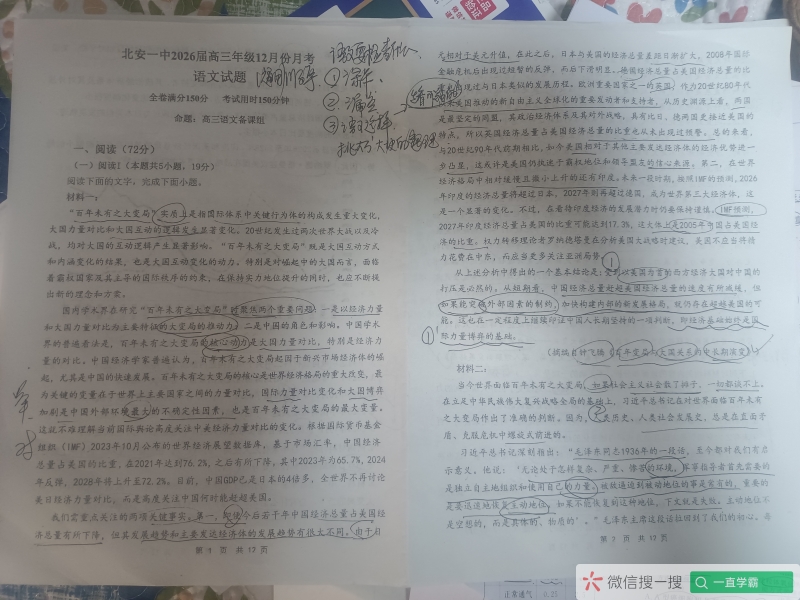 北安一中2026届高三年级12月份月考
语文试题
全卷满分150分 考试用时150分钟
命题：高三语文备课组
一、阅读（72分）
（一）阅读I（本题共5小题，19分）
阅读下面的文字，完成下面小题。
材料一：
“百年未有之大变局”实质上是指国际体系中关键行为体的构成发生重大变化，
大国力量对比和大国互动的逻辑发生显著变化。20世纪发生过两次世界大战以及冷
战，均对大国的互动逻辑产生显著影响。“百年未有之大变局”既是大国互动方式
和内涵变化的结果，也是大国互动变化的动力。特别是对崛起中的大国而言，面临
着霸权国家及其主导的国际秩序的约束，在保持实力地位提升的同时，也应不断提
出新的理念和方案。
国内学术界在研究“百年未有之大变局”时聚焦两个重要问题：一是以经济力量
和大国力量对比为主要特征的大变局的推动力，二是中国的角色和影响。中国学术
界的普遍看法是，百年未有之大变局的核心动力是大国力量对比，特别是经济力
量的对比。中国经济学家普遍认为，百年未有之大变局起因于新兴市场经济体的崛
起，尤其是中国的快速发展。百年未有之大变局的核心是世界经济格局的重大改变，最
为关键的变量在于世界上主要国家之间的力量对比，国际力量对比变化和大国博弈
加剧是中国外部环境最大的不确定性因素，也是百年未有之大变局的最大变量。
这就不难理解当前国际舆论高度关注中美经济力量对比的变化。根据国际货币基金
组织（IMF）2023年10月公布的世界经济展望数据库，基于市场汇率，中国经济
总量占美国的比重，在2021年达到76.2%，之后有所下降，其中2023年为65.7%，2024
年反弹，2028年将上升至72.2%。目前，中国GDP已是日本的4倍多，全世界不再讨论
美日经济力量对比，而是高度关注中国何时能超越美国。
我们需重点关注的两项关键事实。第一，即使今后若干年中国经济总量占美国经
济总量有所下降，但其发展趋势和主要发达经济体的发展趋势有很大不同。由于日
第 1 页 共 17 页
元相对于美元升值，在此之后，日本与美国的经济总量差距日渐扩大。2008年国际
金融危机后出现过短暂的反弹，而后下滑明显。德国经济总量占美国经济总量的比
重也出现过与日本类似的发展历程。欧洲重要国家之一的英国，作为20世纪80年代
以来美国推动的新自由主义全球化的重要发动者和支持者，从历史渊源上看，两国
是最坚定的同盟，其政治经济体系及其对外战略，具有比日、德两国更接近美国的
特点。所以英国经济总量占美国经济总量的比重也从未出现过预警。总的来看，
与20世纪90年代前期相比，如今美国相对于其他主要发达经济体的经济优势进一
步凸显，这或许是美国仍执迷于霸权地位和领导盟友的信心来源。第二，在世界
经济格局中相对缓慢且微小上升的还有印度。未来一段时期，按照IMF的预测，2026
年印度的经济总量将超过日本，2027年则再超过德国，成为世界第三大经济体，这
是一个显著的变化。不过，在看待印度经济的发展潜力时仍要保持谨慎，IMF预测，
2027年印度经济总量占美国的比重可能达到17.3%，这大体上是2005年中国占美国经济
的比重。权力转移理论者罗纳德塔曼在分析美国大战略时建议，美国不应当将精
力花费在中东，而应当更多关注亚洲局势。
从上述分析中得出的一个基本结论是：受到以美国为首的西方经济大国对中国的
打压是必然的。从短期看，中国经济总量赶超美国经济总量的速度有所减退，但
如果能突破外部因素的制约，加快构建内部的新发展格局，就仍存在超越美国的可
能。这也在一定程度上继续印证中国人长期坚持的一项判断，即经济基础始终是国
际力量博弈的基础。
（摘编自钟飞腾《百年变局与大国关系的中长期演变》）
材料二：
当个世界面临百年未有之大变局，如果社会主义社会散了摊子，一切都谈不上。
在立足中华民族伟大复兴战略全局的基础上，习近平总书记在对世界面临百年未有
之大变局作出了准确的判断。因为，人类历史、人类社会发展史，总是在直面矛
盾、克服危机中螺旋式前进的。
习近平总书记深刻指出：“毛泽东同志1936年的一段话，至今都对我们有启
示意义。他说：‘无论处于怎样复杂、严重、惨苦的环境，军事指导者首先需要的
是独立自主地组织和使用自己的力量。被敌逼迫到被动地位的事是常有的，重要的
是要迅速地恢复主动地位。如果不能恢复到这种地位，下文就是失败。主动地位不
是空想的，而是具体的，物质的’。”毛泽东主席这段话拉回到了我们的初心。每
第 2 页 共 17 页
微信搜一搜
一直学霸